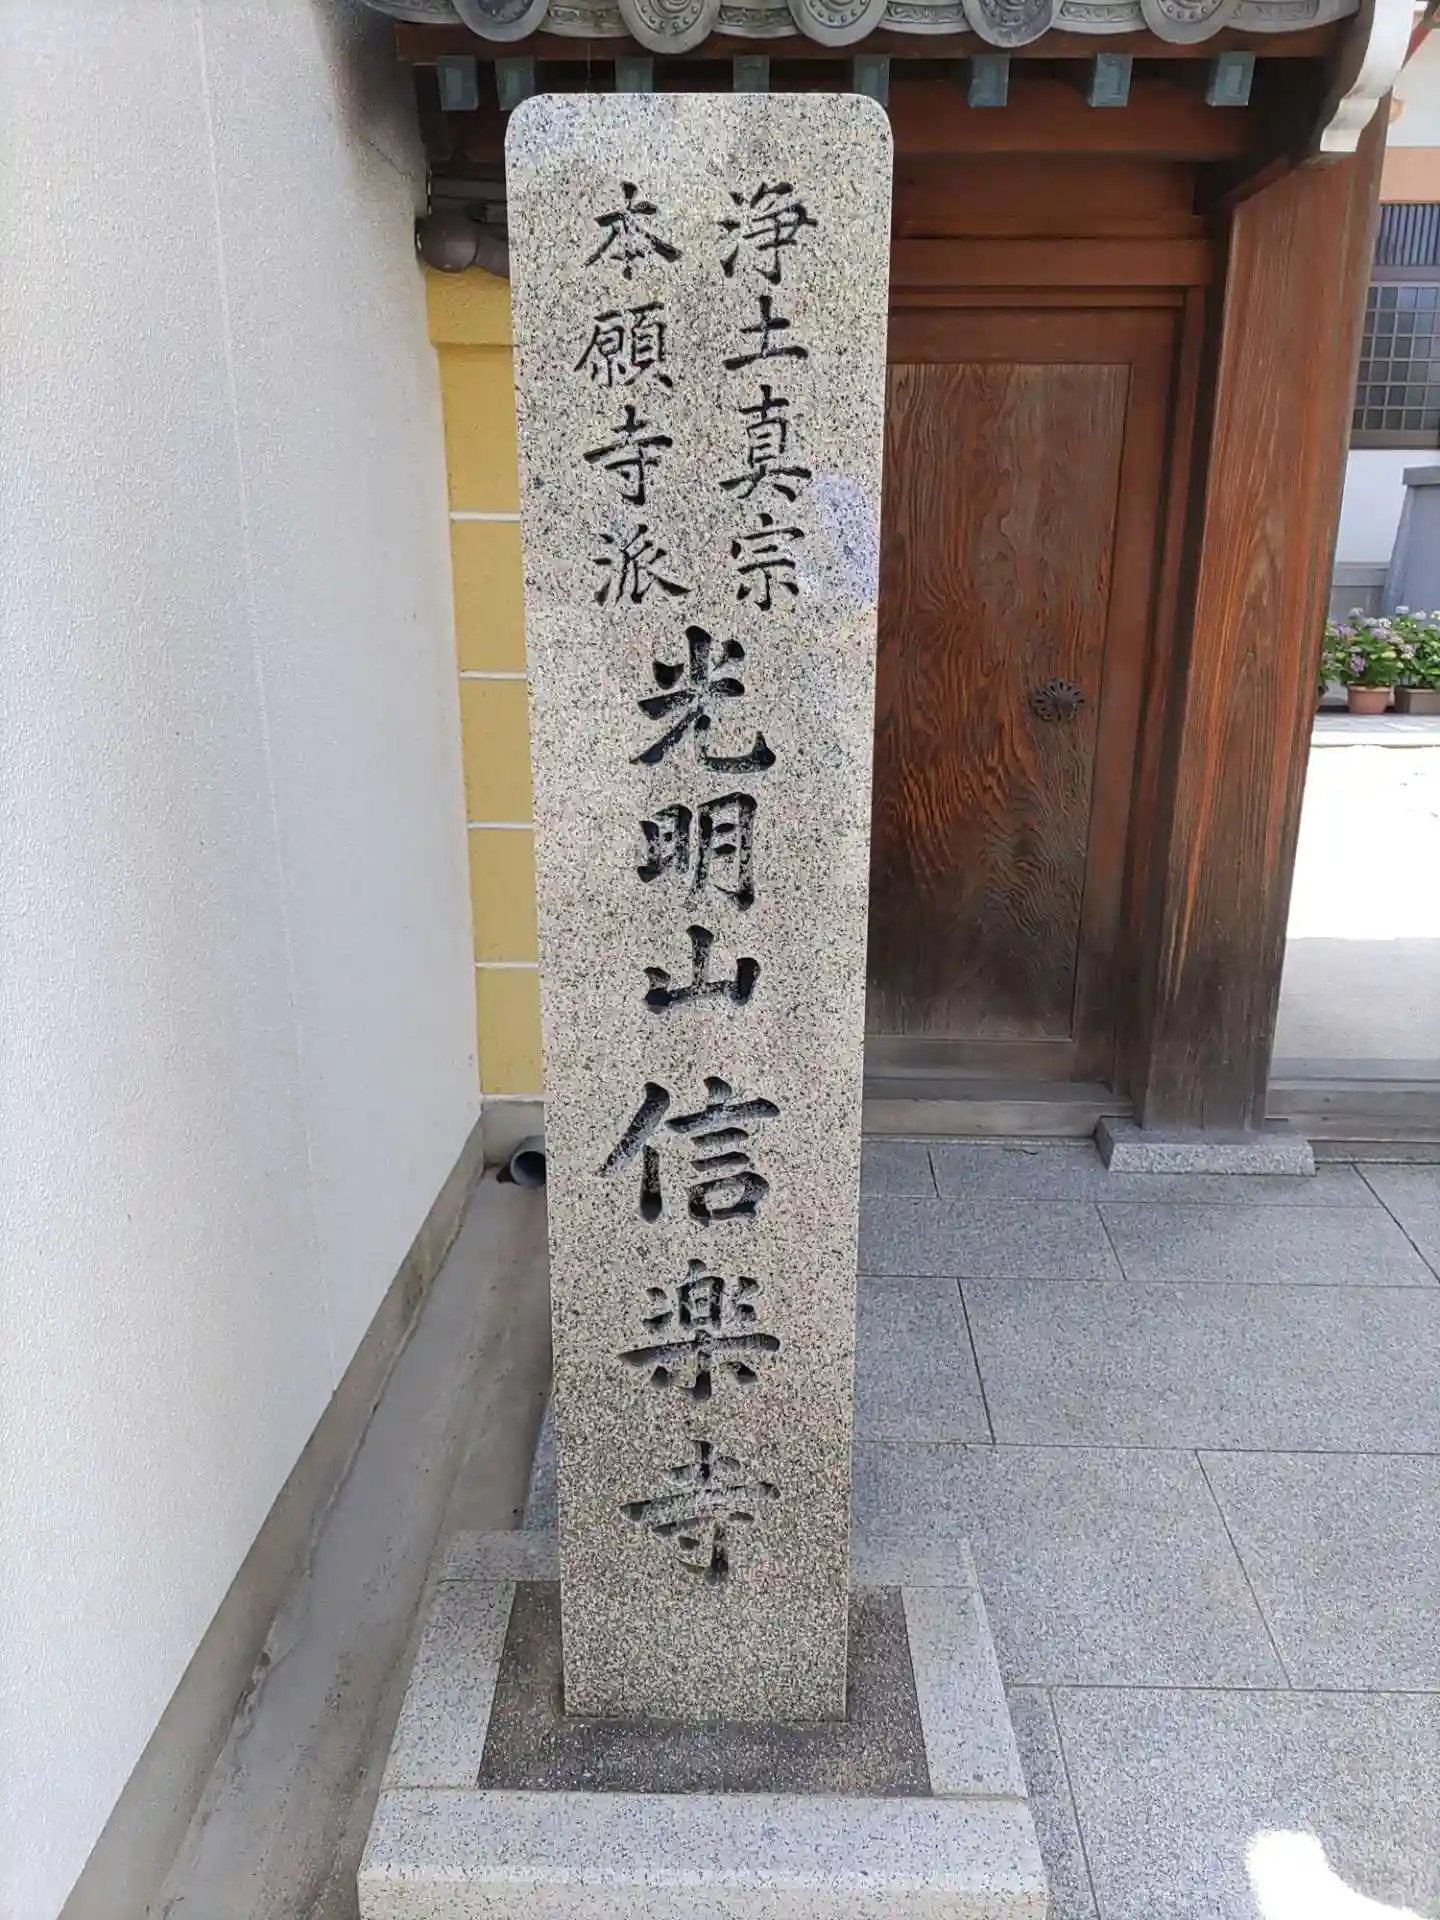 浄土真宗
本願寺派
光明山信楽寺